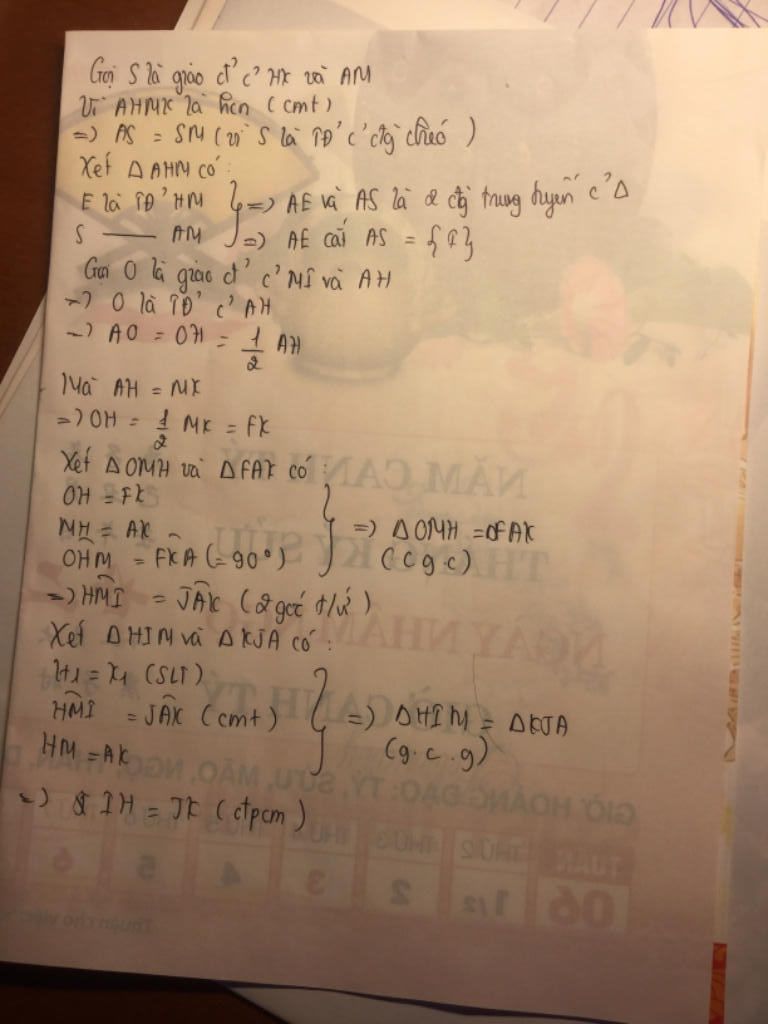 Gọi S là giao đ' c' HK và AM
Vì AHMK là hcn (cmt)
=> AS = SM (vì S là TĐ' c' đg chéo)
Xét Δ AHM có:
E là TĐ' HM } => AE và AS là 2 đg trung tuyến c' Δ
S —— AM => AE cắt AS = {I}
Gọi O là giao đ' c' MI và AH
=> O là TĐ' c' AH
=> AO = OH = 1/2 AH
Mà AH = MK
=> OH = 1/2 MK = FK
Xét ΔOMH và ΔFAK có:
OH = FK
MH = AK } => ΔOMH = ΔFAK
OĤM = FK̂A (= 90°) (c.g.c)
=> HM̂I = JÂK (2 góc t/ứ)
Xét ΔHIM và ΔKJA có:
H1 = K1 (SLT)
HM̂I = JÂK (cmt) } => ΔHIM = ΔKJA
HM = AK (g.c.g)
=> IH = JK (đpcm)
NĂM CANH TÝ
THÁNG KỶ SỬU
NGÀY NHÂM NGỌ
GIỜ CANH TÝ
GIỜ HOÀNG ĐẠO: TÝ, SỬU, MÃO, NGỌ, THÂN, D
TUẦN THỨ 2 THỨ 3 THỨ 4 THỨ 5
06 1/2 2 3 4 5 6
Thuận cho việc